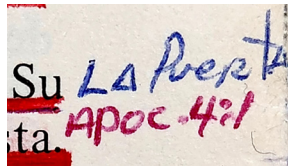 Su LA Puerta
sta. APOC. 4:1